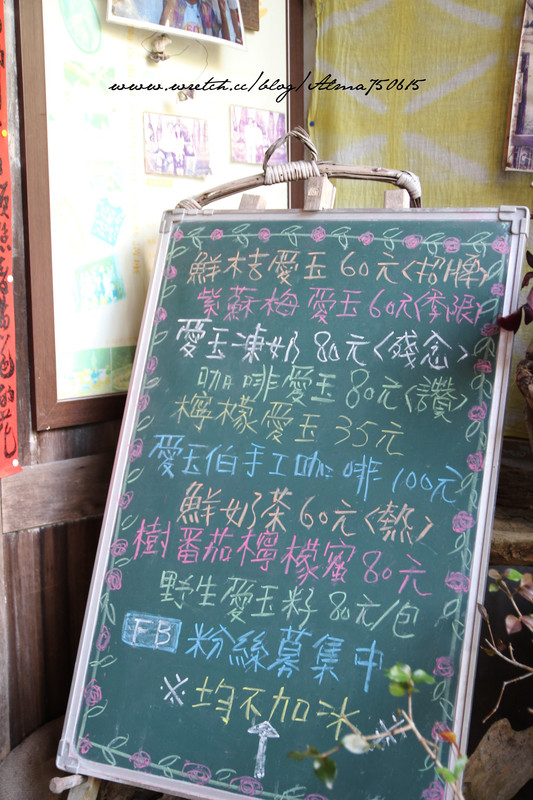 www.wretch.cc/blog/Atma750615
鮮桔愛玉 60元<招牌>
紫蘇梅愛玉 60元<季限>
愛玉凍奶 80元<殘念>
咖啡愛玉 80元<讚>
檸檬愛玉 35元
愛玉伯手工咖啡 100元
鮮奶茶 60元<熱>
樹番茄檸檬蜜 80元
野生愛玉籽 80元/包
FB 粉絲募集中
※均不加冰